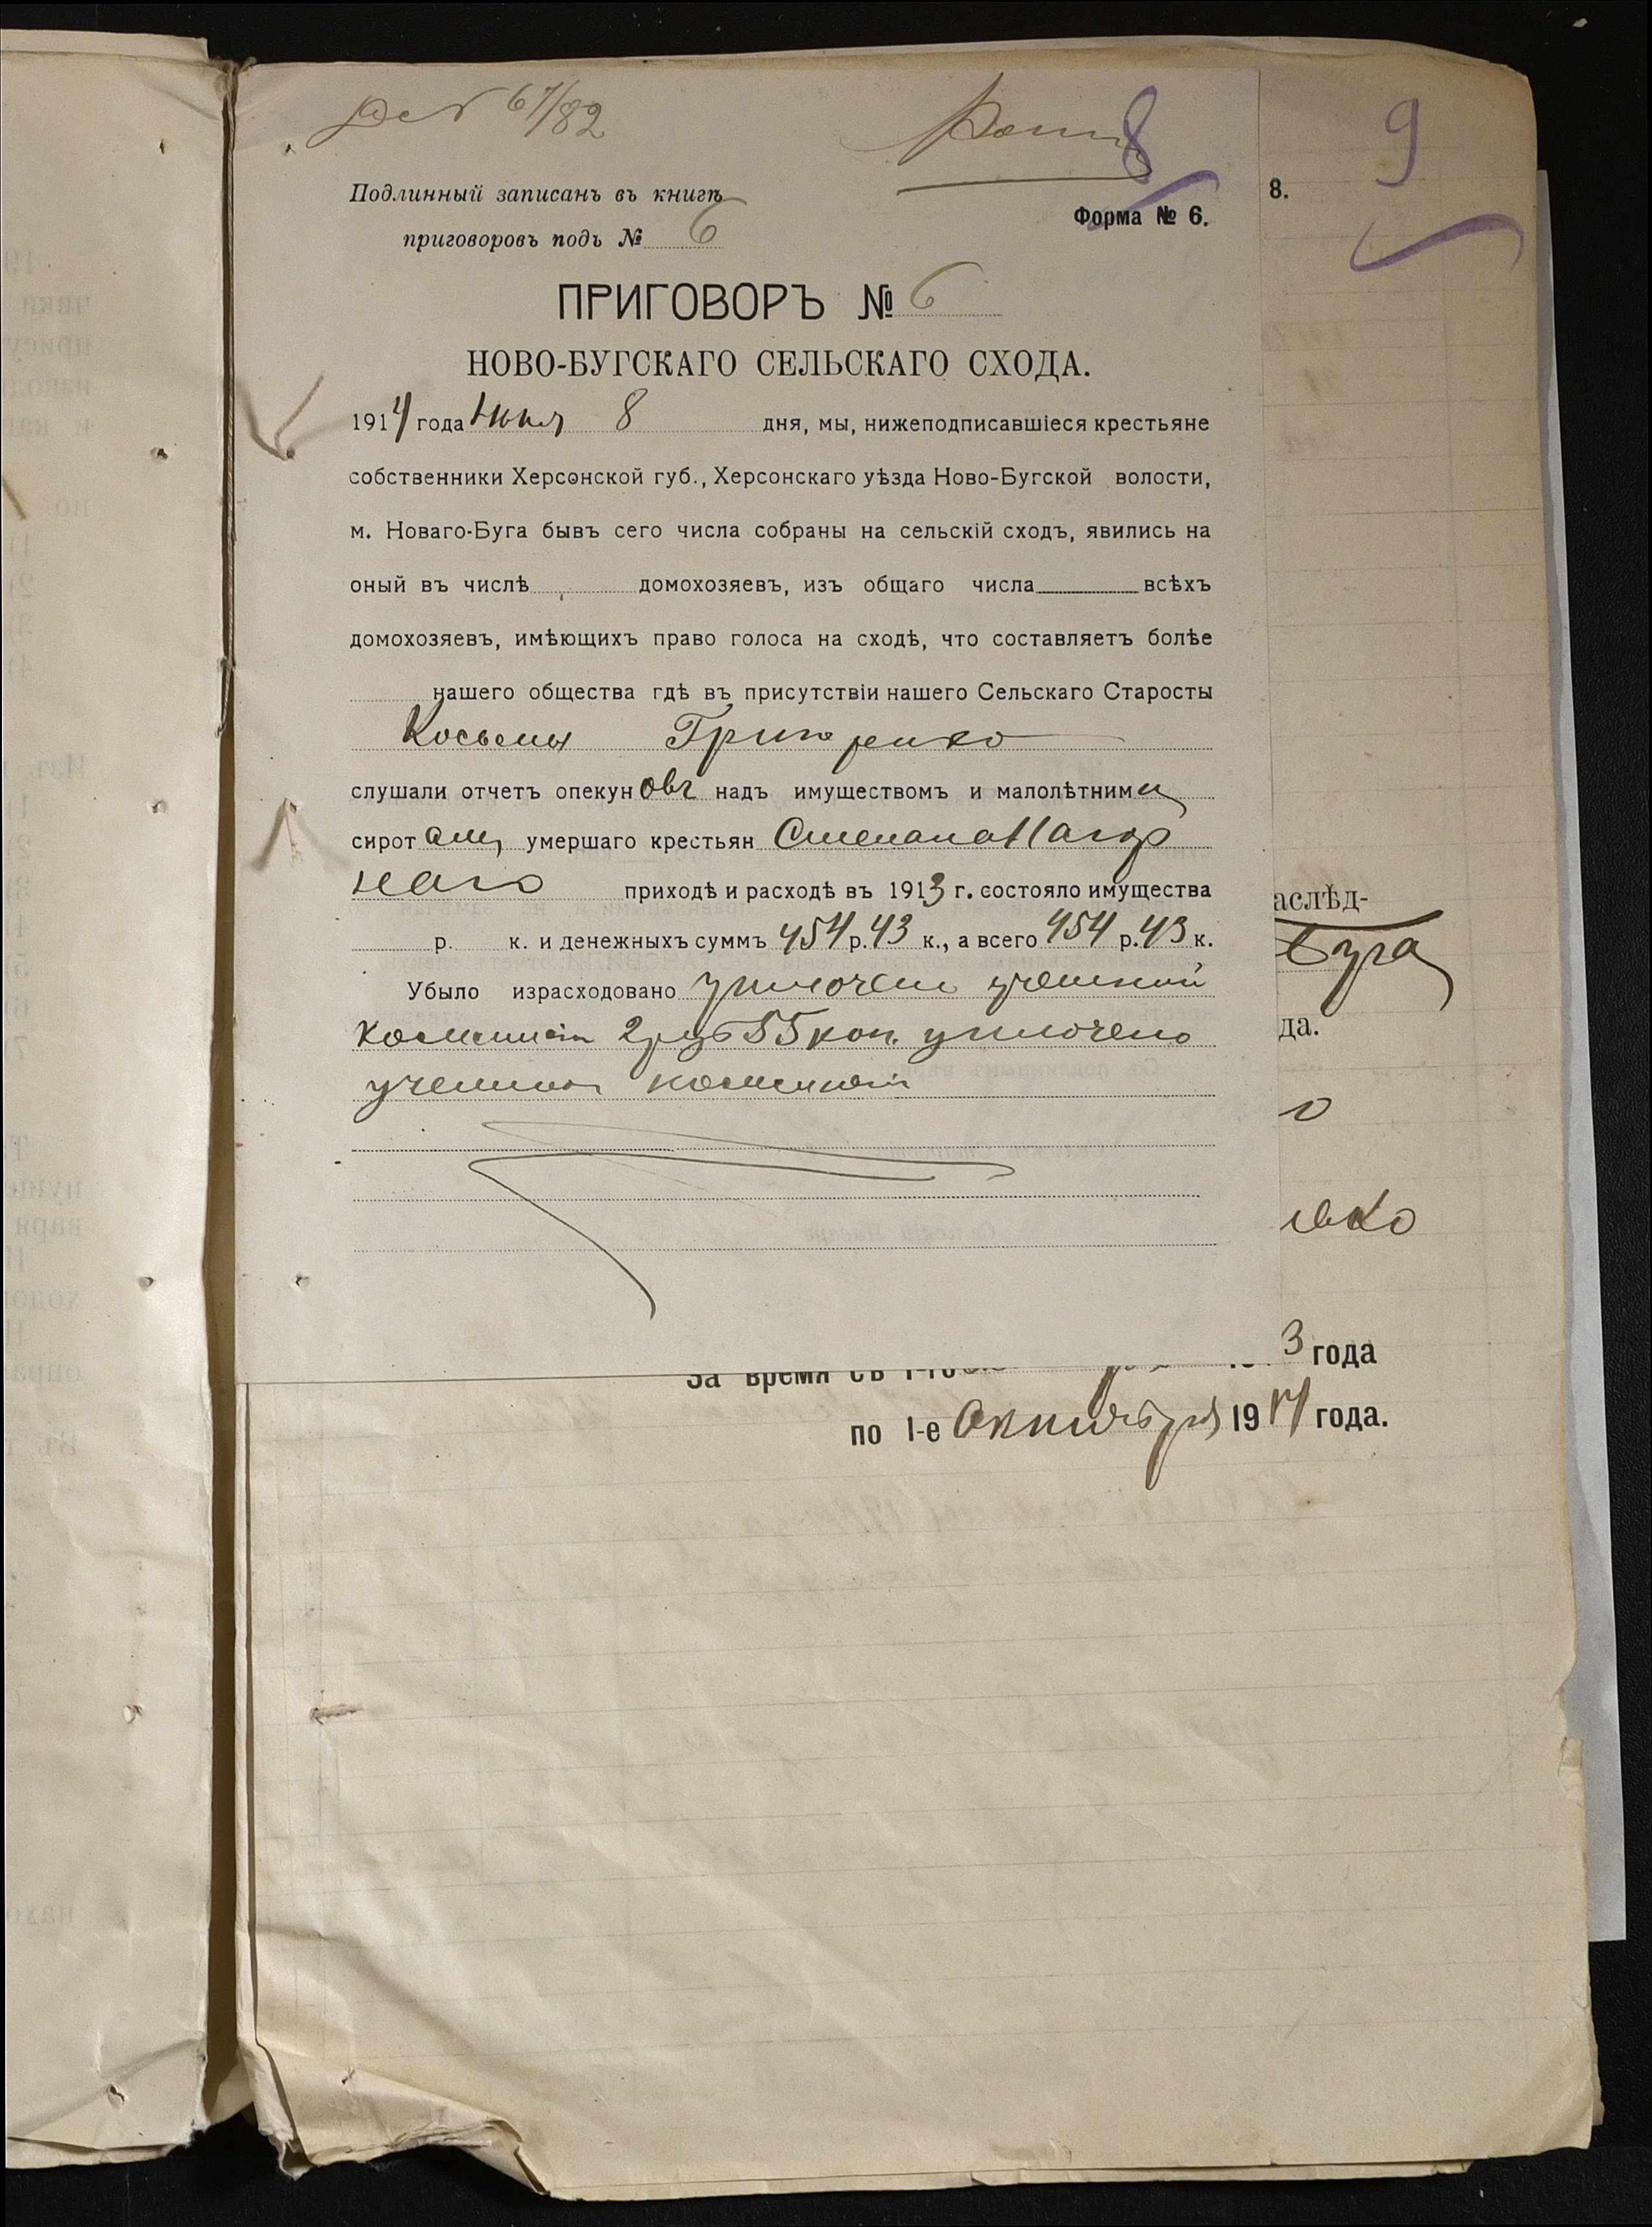 № 67/82
8
9
Подлинный записанъ въ книгѣ
приговоровъ подъ № 6
Форма № 6.
8.
ПРИГОВОРЪ № 6
НОВО-БУГСКАГО СЕЛЬСКАГО СХОДА.
1914 года Июня 8 дня, мы, нижеподписавшіеся крестьяне
собственники Херсонской губ., Херсонскаго уѣзда Ново-Бугской волости,
м. Новаго-Буга бывъ сего числа собраны на сельскій сходъ, явились на
оный въ числѣ домохозяевъ, изъ общаго числа всѣхъ
домохозяевъ, имѣющихъ право голоса на сходѣ, что составляетъ болѣе
нашего общества гдѣ въ присутствіи нашего Сельскаго Старосты
Косьмы
слушали отчетъ опекуновъ надъ имуществомъ и малолѣтними
сиротами умершаго крестьян Степана Нагор
наго приходѣ и расходѣ въ 1913 г. состояло имущества
р. к. и денежныхъ суммъ 454 р. 43 к., а всего 454 р. 43 к.
Убыло израсходовано уплочено учетной
коммисіи 2 руб 55 коп. уплочено
учетной коммисіи
аслѣд-
Буга
да.
о
нко
За время съ 1-го 3 года
по 1-е Октября 1914 года.